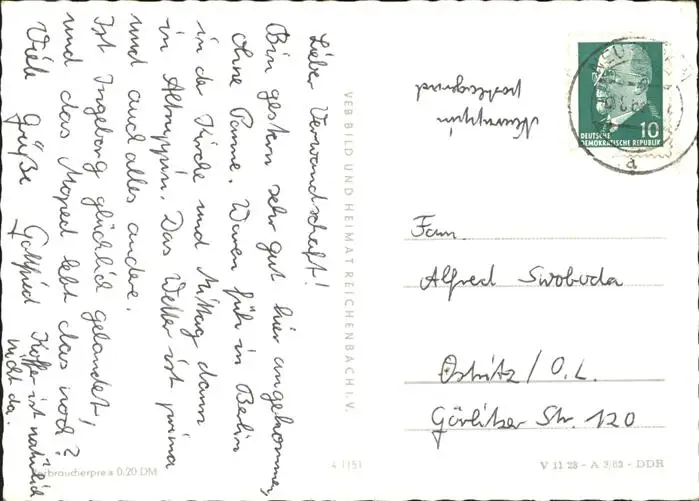 Liebe Verwandschaft!
Bin gestern sehr gut hier angekommen,
Ohne Panne. Waren früh in Berlin
in der Kirche und Mittag dann
in Altruppin. Das Wetter ist prima
und auch alles andere.
Ist Ingeborg glücklich gelandet,
und das Moped lebt das noch?
Viele Grüße Gottfried
Koffer ist natürlich
nicht da.
VEB BILD UND HEIMAT REICHENBACH I. V.
Neuruppin
postlagernd
DEUTSCHE
DEMOKRATISCHE REPUBLIK
10
a
Fam.
Alfred Swoboda
Ostritz / O.L.
Görlitzer Str. 120
Verbraucherpreis 0,20 DM
V 11 28 - A 3/62 - DDR